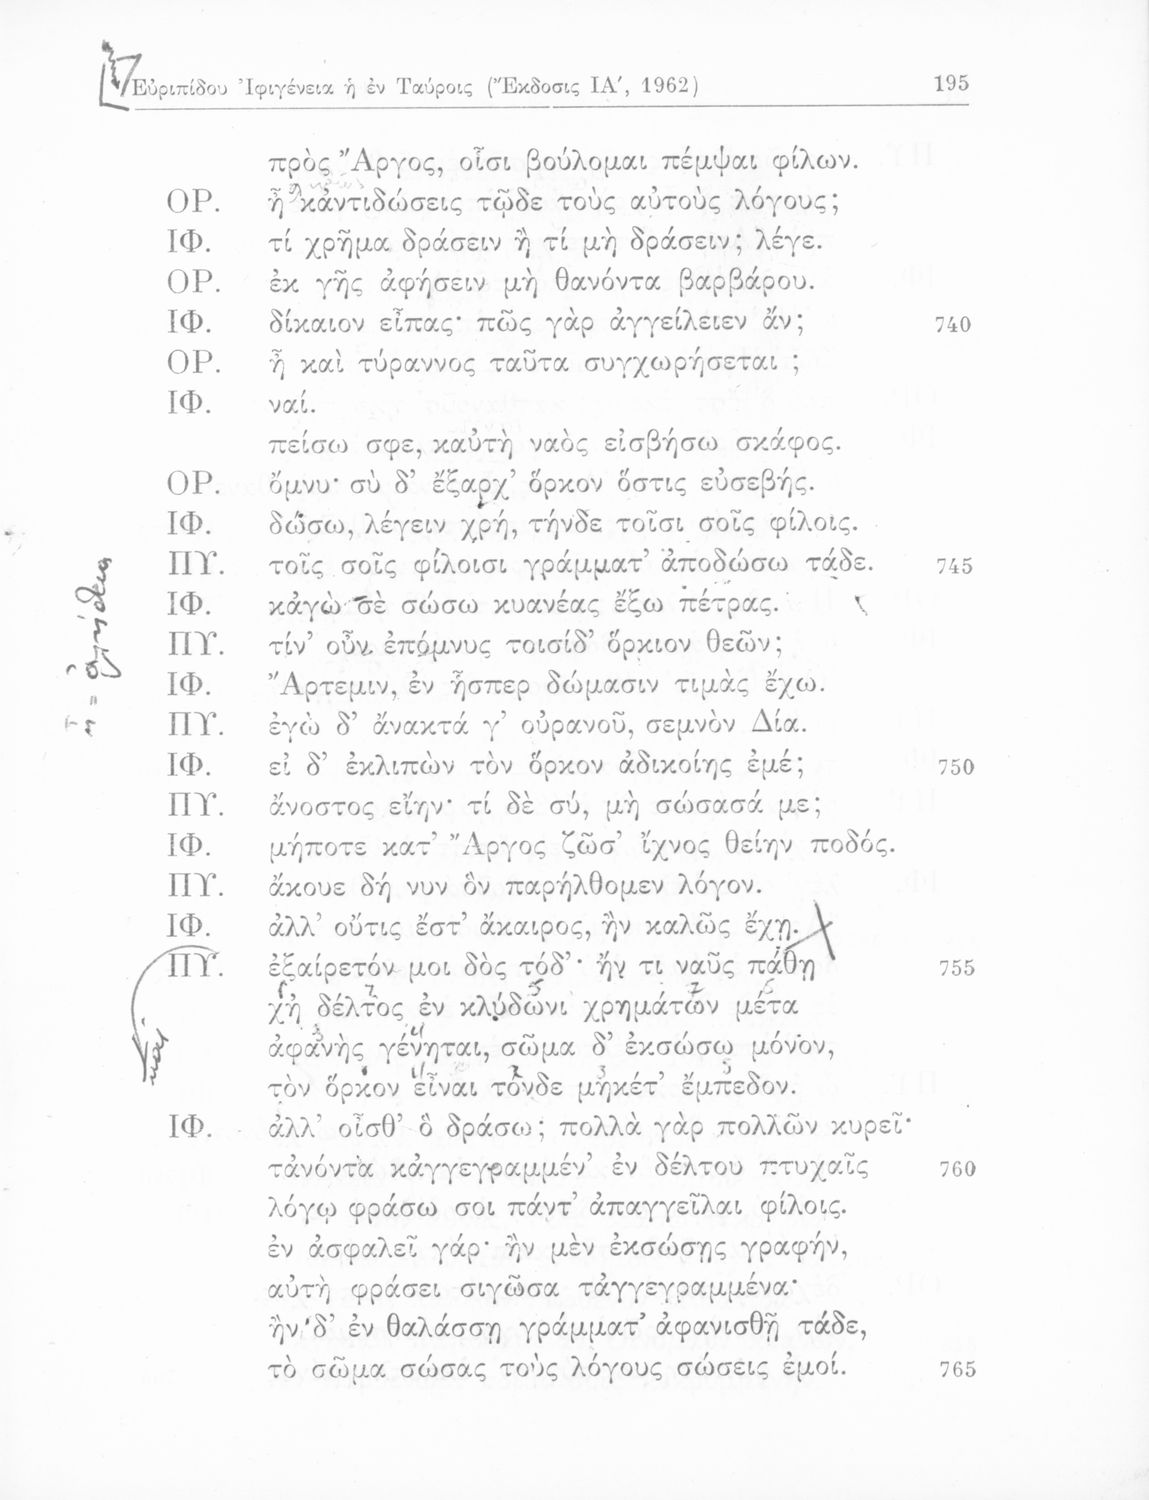 Εὐριπίδου Ἰφιγένεια ἡ ἐν Ταύροις (Ἔκδοσις ΙΑ′, 1962) 195
πρὸς Ἄργος, οἷσι βούλομαι πέμψαι φίλων.
ΟΡ. ἦ κἀντιδώσεις τῷδε τοὺς αὐτοὺς λόγους;
ΙΦ. τί χρῆμα δράσειν ἢ τί μὴ δράσειν; λέγε.
ΟΡ. ἐκ γῆς ἀφήσειν μὴ θανόντα βαρβάρου.
ΙΦ. δίκαιον εἶπας· πῶς γὰρ ἀγγείλειεν ἄν; 740
ΟΡ. ἦ καὶ τύραννος ταῦτα συγχωρήσεται ;
ΙΦ. ναί.
πείσω σφε, καὐτὴ ναὸς εἰσβήσω σκάφος.
ΟΡ. ὄμνυ· σὺ δ’ ἔξαρχ’ ὅρκον ὅστις εὐσεβής.
ΙΦ. δώσω, λέγειν χρή, τήνδε τοῖσι σοῖς φίλοις.
ΠΥ. τοῖς σοῖς φίλοισι γράμματ’ ἀποδώσω τάδε. 745
ΙΦ. κἀγὼ σὲ σώσω κυανέας ἔξω πέτρας.
ΠΥ. τίν’ οὖν ἐπόμνυς τοισίδ’ ὅρκιον θεῶν;
ΙΦ. Ἄρτεμιν, ἐν ἧσπερ δώμασιν τιμὰς ἔχω.
ΠΥ. ἐγὼ δ’ ἄνακτά γ’ οὐρανοῦ, σεμνὸν Δία.
ΙΦ. εἰ δ’ ἐκλιπὼν τὸν ὅρκον ἀδικοίης ἐμέ; 750
ΠΥ. ἄνοστος εἴην· τί δὲ σύ, μὴ σώσασά με;
ΙΦ. μήποτε κατ’ Ἄργος ζῶσ’ ἴχνος θείην ποδός.
ΠΥ. ἄκουε δή νυν ὃν παρήλθομεν λόγον.
ΙΦ. ἀλλ’ οὔτις ἔστ’ ἄκαιρος, ἢν καλῶς ἔχῃ.
ΠΥ. ἐξαίρετόν μοι δὸς τόδ’· ἤν τι ναῦς πάθῃ 755
χἠ δέλτος ἐν κλύδωνι χρημάτων μέτα
ἀφανὴς γένηται, σῶμα δ’ ἐκσώσω μόνον,
τὸν ὅρκον εἶναι τόνδε μηκέτ’ ἔμπεδον.
ΙΦ. ἀλλ’ οἶσθ’ ὃ δράσω; πολλὰ γὰρ πολλῶν κυρεῖ·
τἀνόντα κἀγγεγραμμέν’ ἐν δέλτου πτυχαῖς 760
λόγῳ φράσω σοι πάντ’ ἀπαγγεῖλαι φίλοις.
ἐν ἀσφαλεῖ γάρ· ἢν μὲν ἐκσώσῃς γραφήν,
αὐτὴ φράσει σιγῶσα τἀγγεγραμμένα·
ἢν δ’ ἐν θαλάσσῃ γράμματ’ ἀφανισθῇ τάδε,
τὸ σῶμα σώσας τοὺς λόγους σώσεις ἐμοί. 765